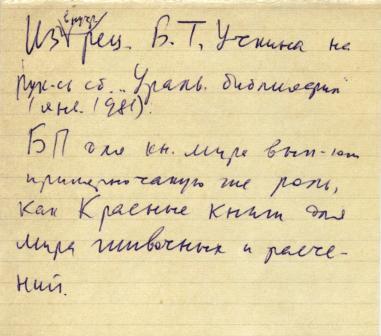 Из внутр. рец. Б. Т. Уткина на
рук-сь сб. "Ураль. библиофил"
(янв. 1981).
БП для кн. мира вып-ют
примерно такую же роль,
как Красные книги для
мира животных и расте-
ний.